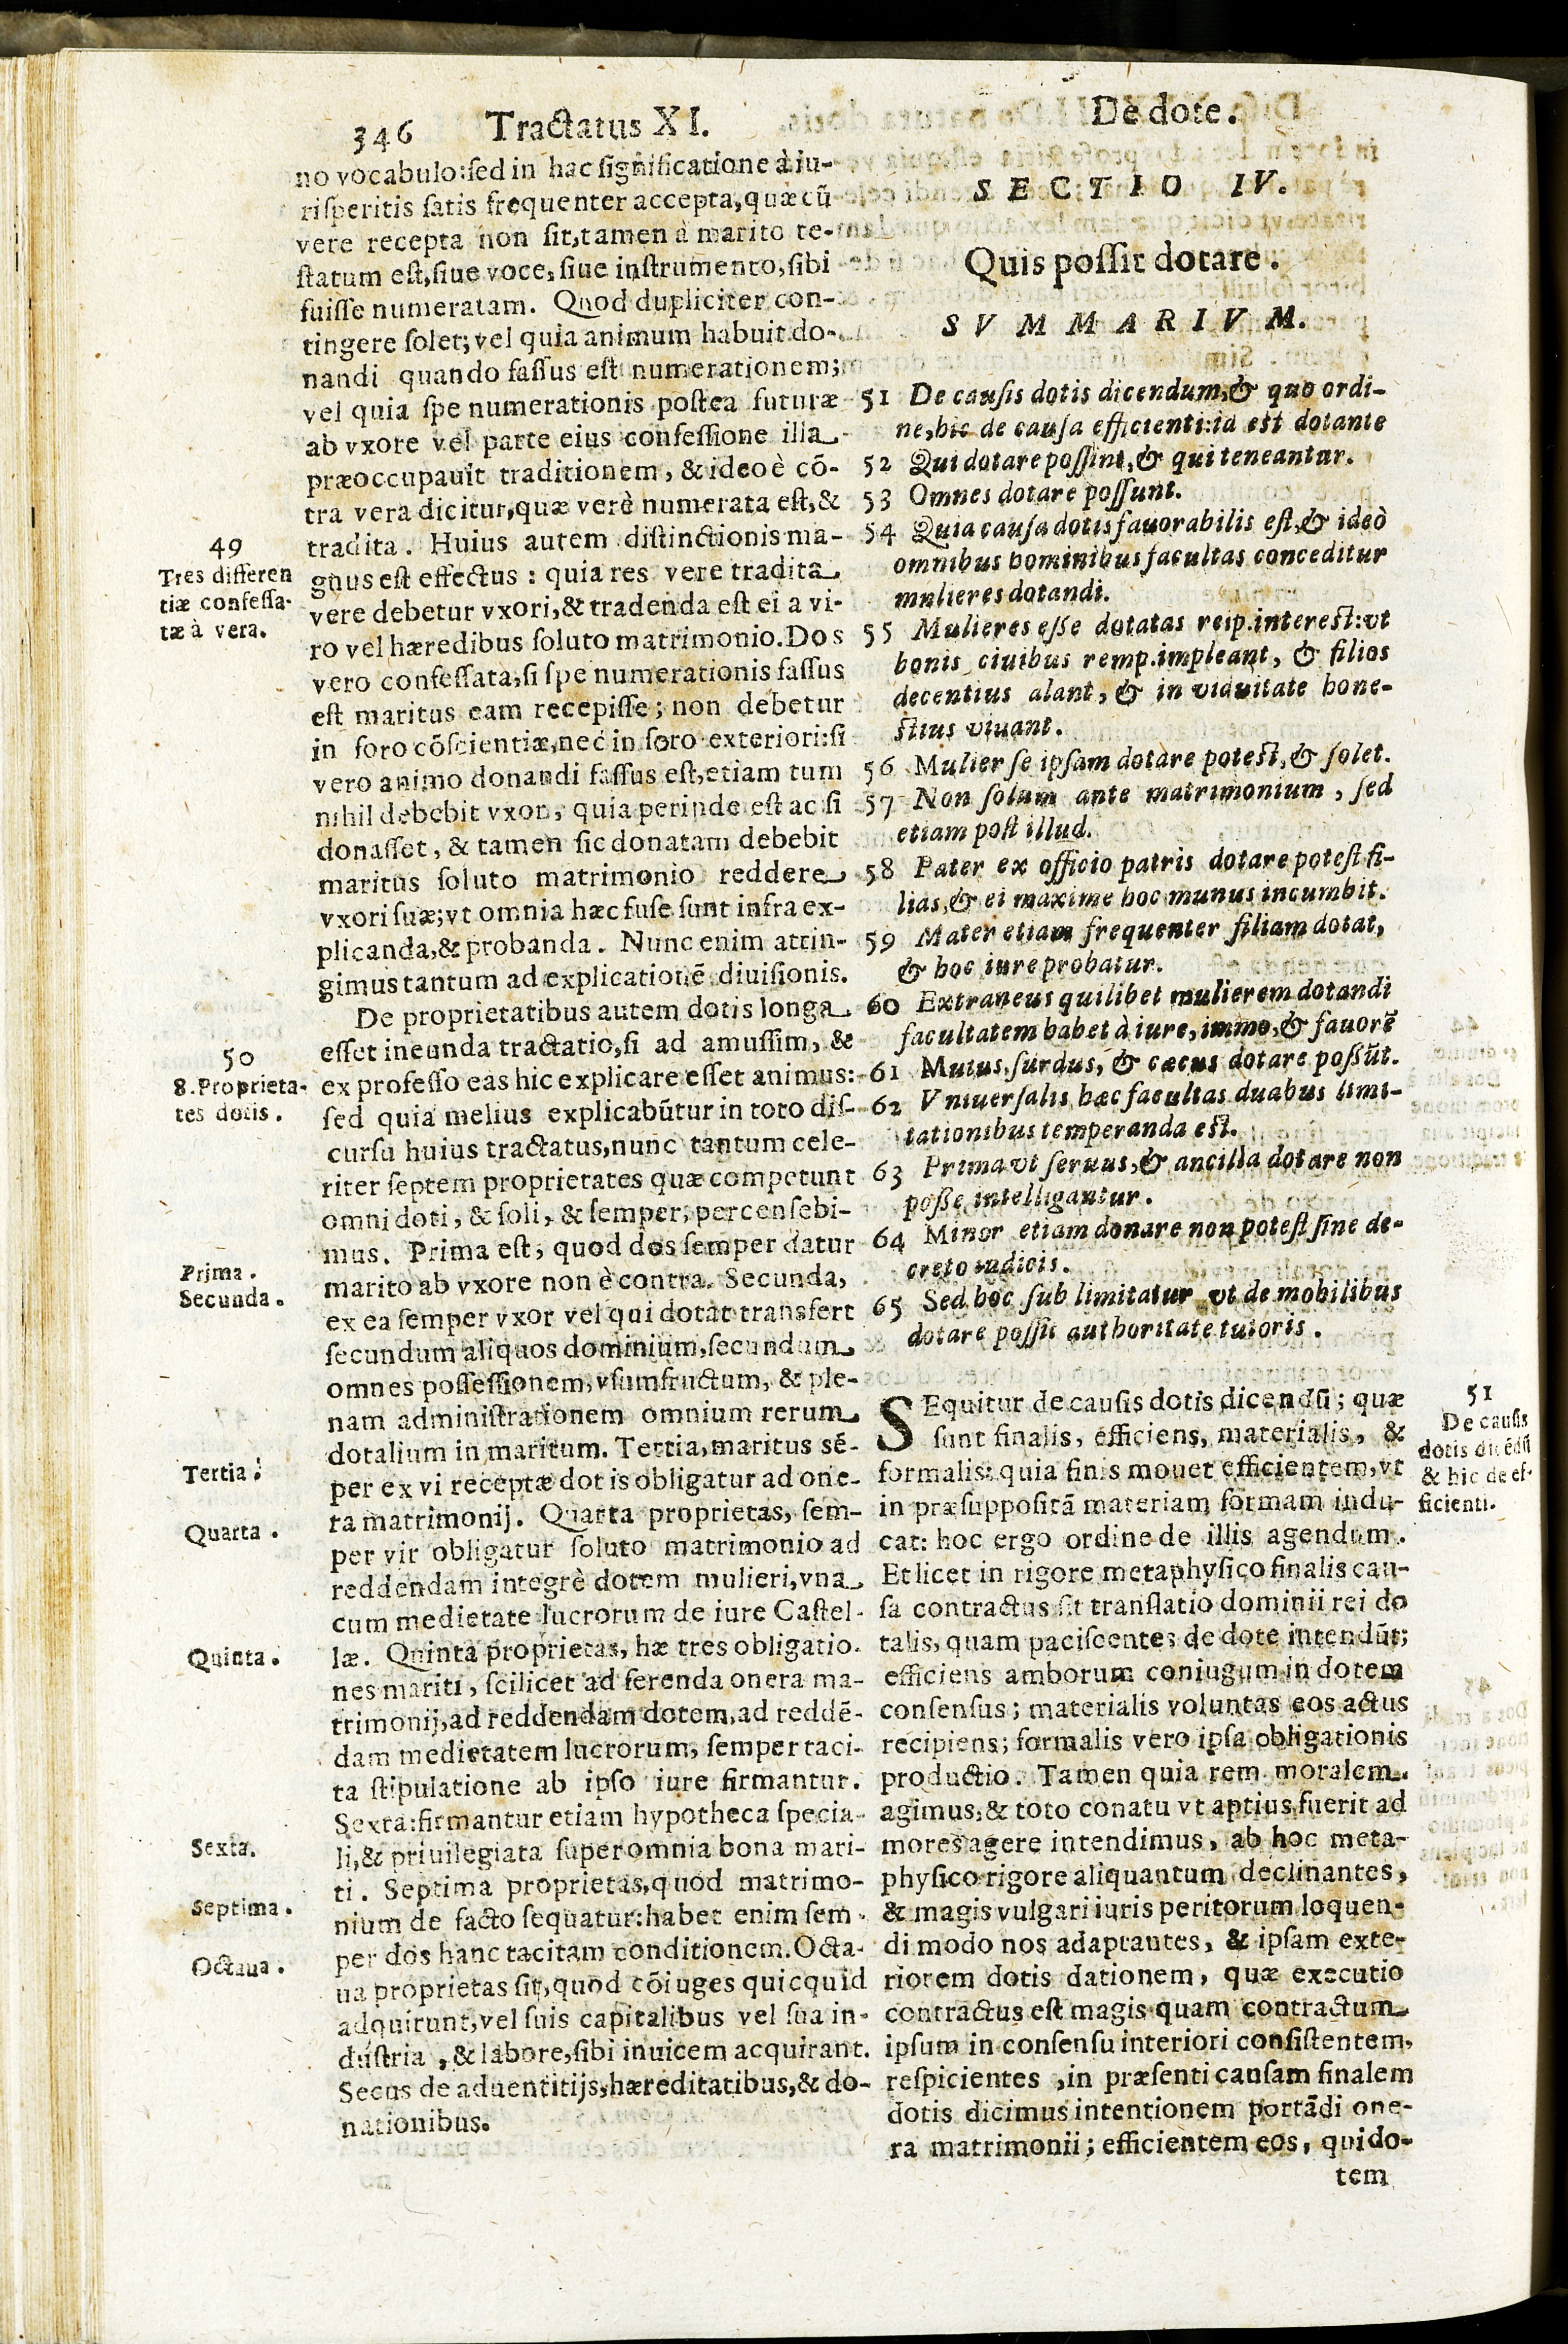 346 Tractatus XI. De dote.
no vocabulo:sed in hac significatione à iu-
risperitis satis frequenter accepta,quæ cũ
vere recepta non sit,tamen à marito te-
statum est,siue voce, siue instrumento,sibi
fuisse numeratam. Quod dupliciter con-
tingere solet; vel quia animum habuit do-
nandi quando fassus est numerationem;
vel quia spe numerationis postea futuræ
ab vxore vel parte eius confessione illa
præoccupauit traditionem, & ideo è cõ-
tra vera dicitur,quæ verè numerata est,&
tradita. Huius autem distinctionis ma-
gnus est effectus : quia res vere tradita
vere debetur vxori,& tradenda est ei a vi-
ro vel hæredibus soluto matrimonio. Dos
vero confessata,si spe numerationis fassus
est maritus eam recepisse; non debetur
in foro cõscientiæ,nec in foro exteriori:si
vero animo donandi fassus est,etiam tum
nihil debebit vxor, quia perinde est ac si
donasset, & tamen sic donatam debebit
maritus soluto matrimonio reddere
vxori suæ;vt omnia hæc fuse sunt infra ex-
plicanda,& probanda. Nunc enim attin-
gimus tantum ad explicationẽ diuisionis.
De proprietatibus autem dotis longa
esset ineunda tractatio,si ad amussim, &
ex professo eas hic explicare esset animus:
sed quia melius explicabũtur in toto dis-
cursu huius tractatus,nunc tantum cele-
riter septem proprietates quæ competunt
omni doti, & soli, & semper, percensebi-
mus. Prima est, quod dos semper datur
marito ab vxore non è contra. Secunda,
ex ea semper vxor vel qui dotat transfert
secundum aliquos dominium,secundum
omnes possessionem,vsumfructum, & ple-
nam administrationem omnium rerum
dotalium in maritum. Tertia,maritus sẽ-
per ex vi receptæ dotis obligatur ad one-
ra matrimonij. Quarta proprietas, sem-
per vir obligatur soluto matrimonio ad
reddendam integrè dotem mulieri,vna
cum medietate lucrorum de iure Castel-
læ. Quinta proprietas, hæ tres obligatio-
nes mariti, scilicet ad ferenda onera ma-
trimonij,ad reddendam dotem,ad reddẽ-
dam medietatem lucrorum, semper taci-
ta stipulatione ab ipso iure firmantur.
Sexta:firmantur etiam hypotheca specia-
li,& priuilegiata super omnia bona mari-
ti. Septima proprietas,quod matrimo-
nium de facto sequatur:habet enim sem-
per dos hanc tacitam conditionem. Octa-
ua proprietas sit,quod cõiuges quicquid
adquirunt,vel suis capitalibus vel sua in-
dustria , & labore,sibi inuicem acquirant.
Secus de aduentitijs,hæreditatibus,& do-
nationibus.
49
Tres differen
tiæ confessa-
tæ à vera.
50
8.Proprieta-
tes dotis.
Prima.
Secunda.
Tertia.
Quarta.
Quinta.
Sexta.
Septima.
Octaua.
SECTIO IV.
Quis possit dotare.
SVMMARIVM.
51 De causis dotis dicendum,& quo ordi-
ne,hic de causa efficienti:id est dotante
52 Qui dotare possint,& qui teneantur.
53 Omnes dotare possunt.
54 Quia causa dotis fauorabilis est,& ideò
omnibus hominibus facultas conceditur
mulieres dotandi.
55 Mulieres esse dotatas reip.interest:vt
bonis ciuibus remp.impleant, & filios
decentius alant, & in viduitate hone-
stius viuant.
56 Mulier se ipsam dotare potest,& solet.
57 Non solum ante matrimonium, sed
etiam post illud.
58 Pater ex officio patris dotare potest fi-
lias,& ei maxime hoc munus incumbit.
59 Mater etiam frequenter filiam dotat,
& hoc iure probatur.
60 Extraneus quilibet mulierem dotandi
facultatem habet à iure,immo,& fauorẽ
61 Mutus,surdus, & cæcus dotare possũt.
62 Vniuersalis hæc facultas duabus limi-
tationibus temperanda est.
63 Prima vt seruus,& ancilla dotare non
posse intelligantur.
64 Minor etiam donare non potest sine de-
creto iudicis.
65 Sed hoc sub limitatur vt de mobilibus
dotare possit authoritate tutoris.
SEquitur de causis dotis dicendũ; quæ
sunt finalis, efficiens, materialis, &
formalis: quia finis mouet efficientem,vt
in præsuppositã materiam formam indu-
cat: hoc ergo ordine de illis agendum.
Et licet in rigore metaphysico finalis cau-
sa contractus sit translatio dominii rei do
talis, quam paciscentes de dote intendũt;
efficiens amborum coniugum in dotem
consensus; materialis voluntas eos actus
recipiens; formalis vero ipsa obligationis
productio. Tamen quia rem moralem
agimus,& toto conatu vt aptius fuerit ad
mores agere intendimus, ab hoc meta-
physico rigore aliquantum declinantes,
& magis vulgari iuris peritorum loquen-
di modo nos adaptantes, & ipsam exte-
riorem dotis dationem, quæ executio
contractus est magis quam contractum
ipsum in consensu interiori consistentem,
respicientes ,in præsenti causam finalem
dotis dicimus intentionem portãdi one-
ra matrimonii; efficientem eos, qui do-
tem
51
De causis
dotis dicẽdũ
& hic de ef-
ficienti.